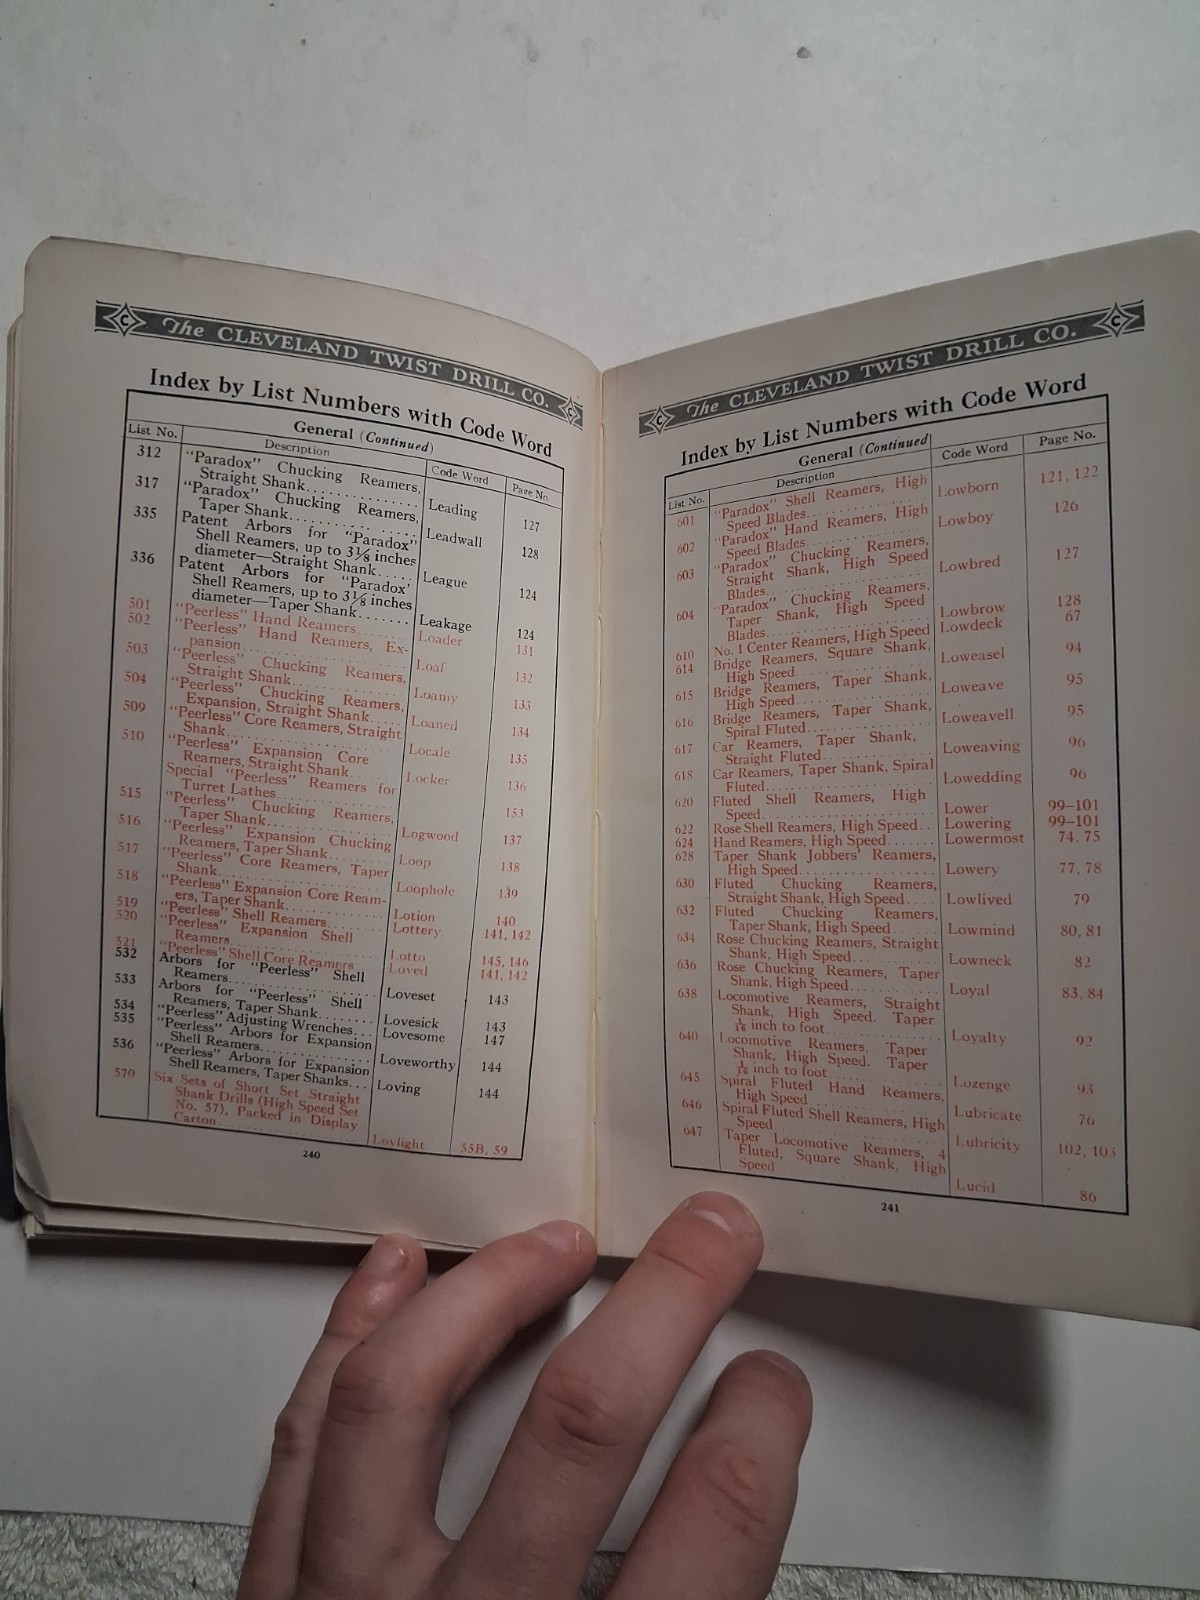 The CLEVELAND TWIST DRILL CO.
Index by List Numbers with Code Word
General (Continued)
List No. Description Code Word Page No.
312 "Paradox" Chucking Reamers,
Straight Shank.............. Leading 127
317 "Paradox" Chucking Reamers,
Taper Shank............... Leadwall 128
335 Patent Arbors for "Paradox"
Shell Reamers, up to 3⅛ inches
diameter—Straight Shank..... League 124
336 Patent Arbors for "Paradox"
Shell Reamers, up to 3⅛ inches
diameter—Taper Shank....... Leakage 124
501 "Peerless" Hand Reamers....... Loader 131
502 "Peerless" Hand Reamers, Ex-
pansion.................... Loaf 132
503 "Peerless" Chucking Reamers,
Straight Shank.............. Loamy 133
504 "Peerless" Chucking Reamers,
Expansion, Straight Shank.... Loaned 134
509 "Peerless" Core Reamers, Straight
Shank..................... Locale 135
510 "Peerless" Expansion Core
Reamers, Straight Shank..... Locker 136
Special "Peerless" Reamers for
Turret Lathes.............. 153
515 "Peerless" Chucking Reamers,
Taper Shank............... Logwood 137
516 "Peerless" Expansion Chucking
Reamers, Taper Shank....... Loop 138
517 "Peerless" Core Reamers, Taper
Shank..................... Loophole 139
518 "Peerless" Expansion Core Ream-
ers, Taper Shank............ Lotion 140
519 "Peerless" Shell Reamers....... Lottery 141, 142
520 "Peerless" Expansion Shell
Reamers................... Lotto 145, 146
521 "Peerless" Shell Core Reamers Loved 141, 142
532 Arbors for "Peerless" Shell
Reamers................... Loveset 143
533 Arbors for "Peerless" Shell
Reamers, Taper Shank....... Lovesick 143
534 "Peerless" Adjusting Wrenches... Lovesome 147
535 "Peerless" Arbors for Expansion
Shell Reamers.............. Loveworthy 144
536 "Peerless" Arbors for Expansion
Shell Reamers, Taper Shanks... Loving 144
570 Six Sets of Short Set Straight
Shank Drills (High Speed Set
No. 57), Packed in Display
Carton.................... Lovlight 55B, 59
240
The CLEVELAND TWIST DRILL CO.
Index by List Numbers with Code Word
General (Continued)
List No. Description Code Word Page No.
601 "Paradox" Shell Reamers, High
Speed Blades............... Lowborn 121, 122
602 "Paradox" Hand Reamers, High
Speed Blades............... Lowboy 126
603 "Paradox" Chucking Reamers,
Straight Shank, High Speed
Blades.................... Lowbred 127
604 "Paradox" Chucking Reamers,
Taper Shank, High Speed
Blades.................... Lowbrow 128
610 No. 1 Center Reamers, High Speed Lowdeck 67
614 Bridge Reamers, Square Shank,
High Speed................ Loweasel 94
615 Bridge Reamers, Taper Shank,
High Speed................ Loweave 95
616 Bridge Reamers, Taper Shank,
Spiral Fluted............... Loweavell 95
617 Car Reamers, Taper Shank,
Straight Fluted............. Loweaving 96
618 Car Reamers, Taper Shank, Spiral
Fluted.................... Lowedding 96
620 Fluted Shell Reamers, High
Speed..................... Lower 99–101
622 Rose Shell Reamers, High Speed.. Lowering 99–101
624 Hand Reamers, High Speed....... Lowermost 74, 75
628 Taper Shank Jobbers' Reamers,
High Speed................ Lowery 77, 78
630 Fluted Chucking Reamers,
Straight Shank, High Speed.... Lowlived 79
632 Fluted Chucking Reamers,
Taper Shank, High Speed..... Lowmind 80, 81
634 Rose Chucking Reamers, Straight
Shank, High Speed........... Lowneck 82
636 Rose Chucking Reamers, Taper
Shank, High Speed........... Loyal 83, 84
638 Locomotive Reamers, Straight
Shank, High Speed. Taper
1/16 inch to foot............. Loyalty 92
640 Locomotive Reamers, Taper
Shank, High Speed. Taper
1/16 inch to foot............. Lozenge 93
645 Spiral Fluted Hand Reamers,
High Speed................ Lubricate 76
646 Spiral Fluted Shell Reamers, High
Speed..................... Lubricity 102, 103
647 Taper Locomotive Reamers, 4
Fluted, Square Shank, High
Speed..................... Lucid 86
241